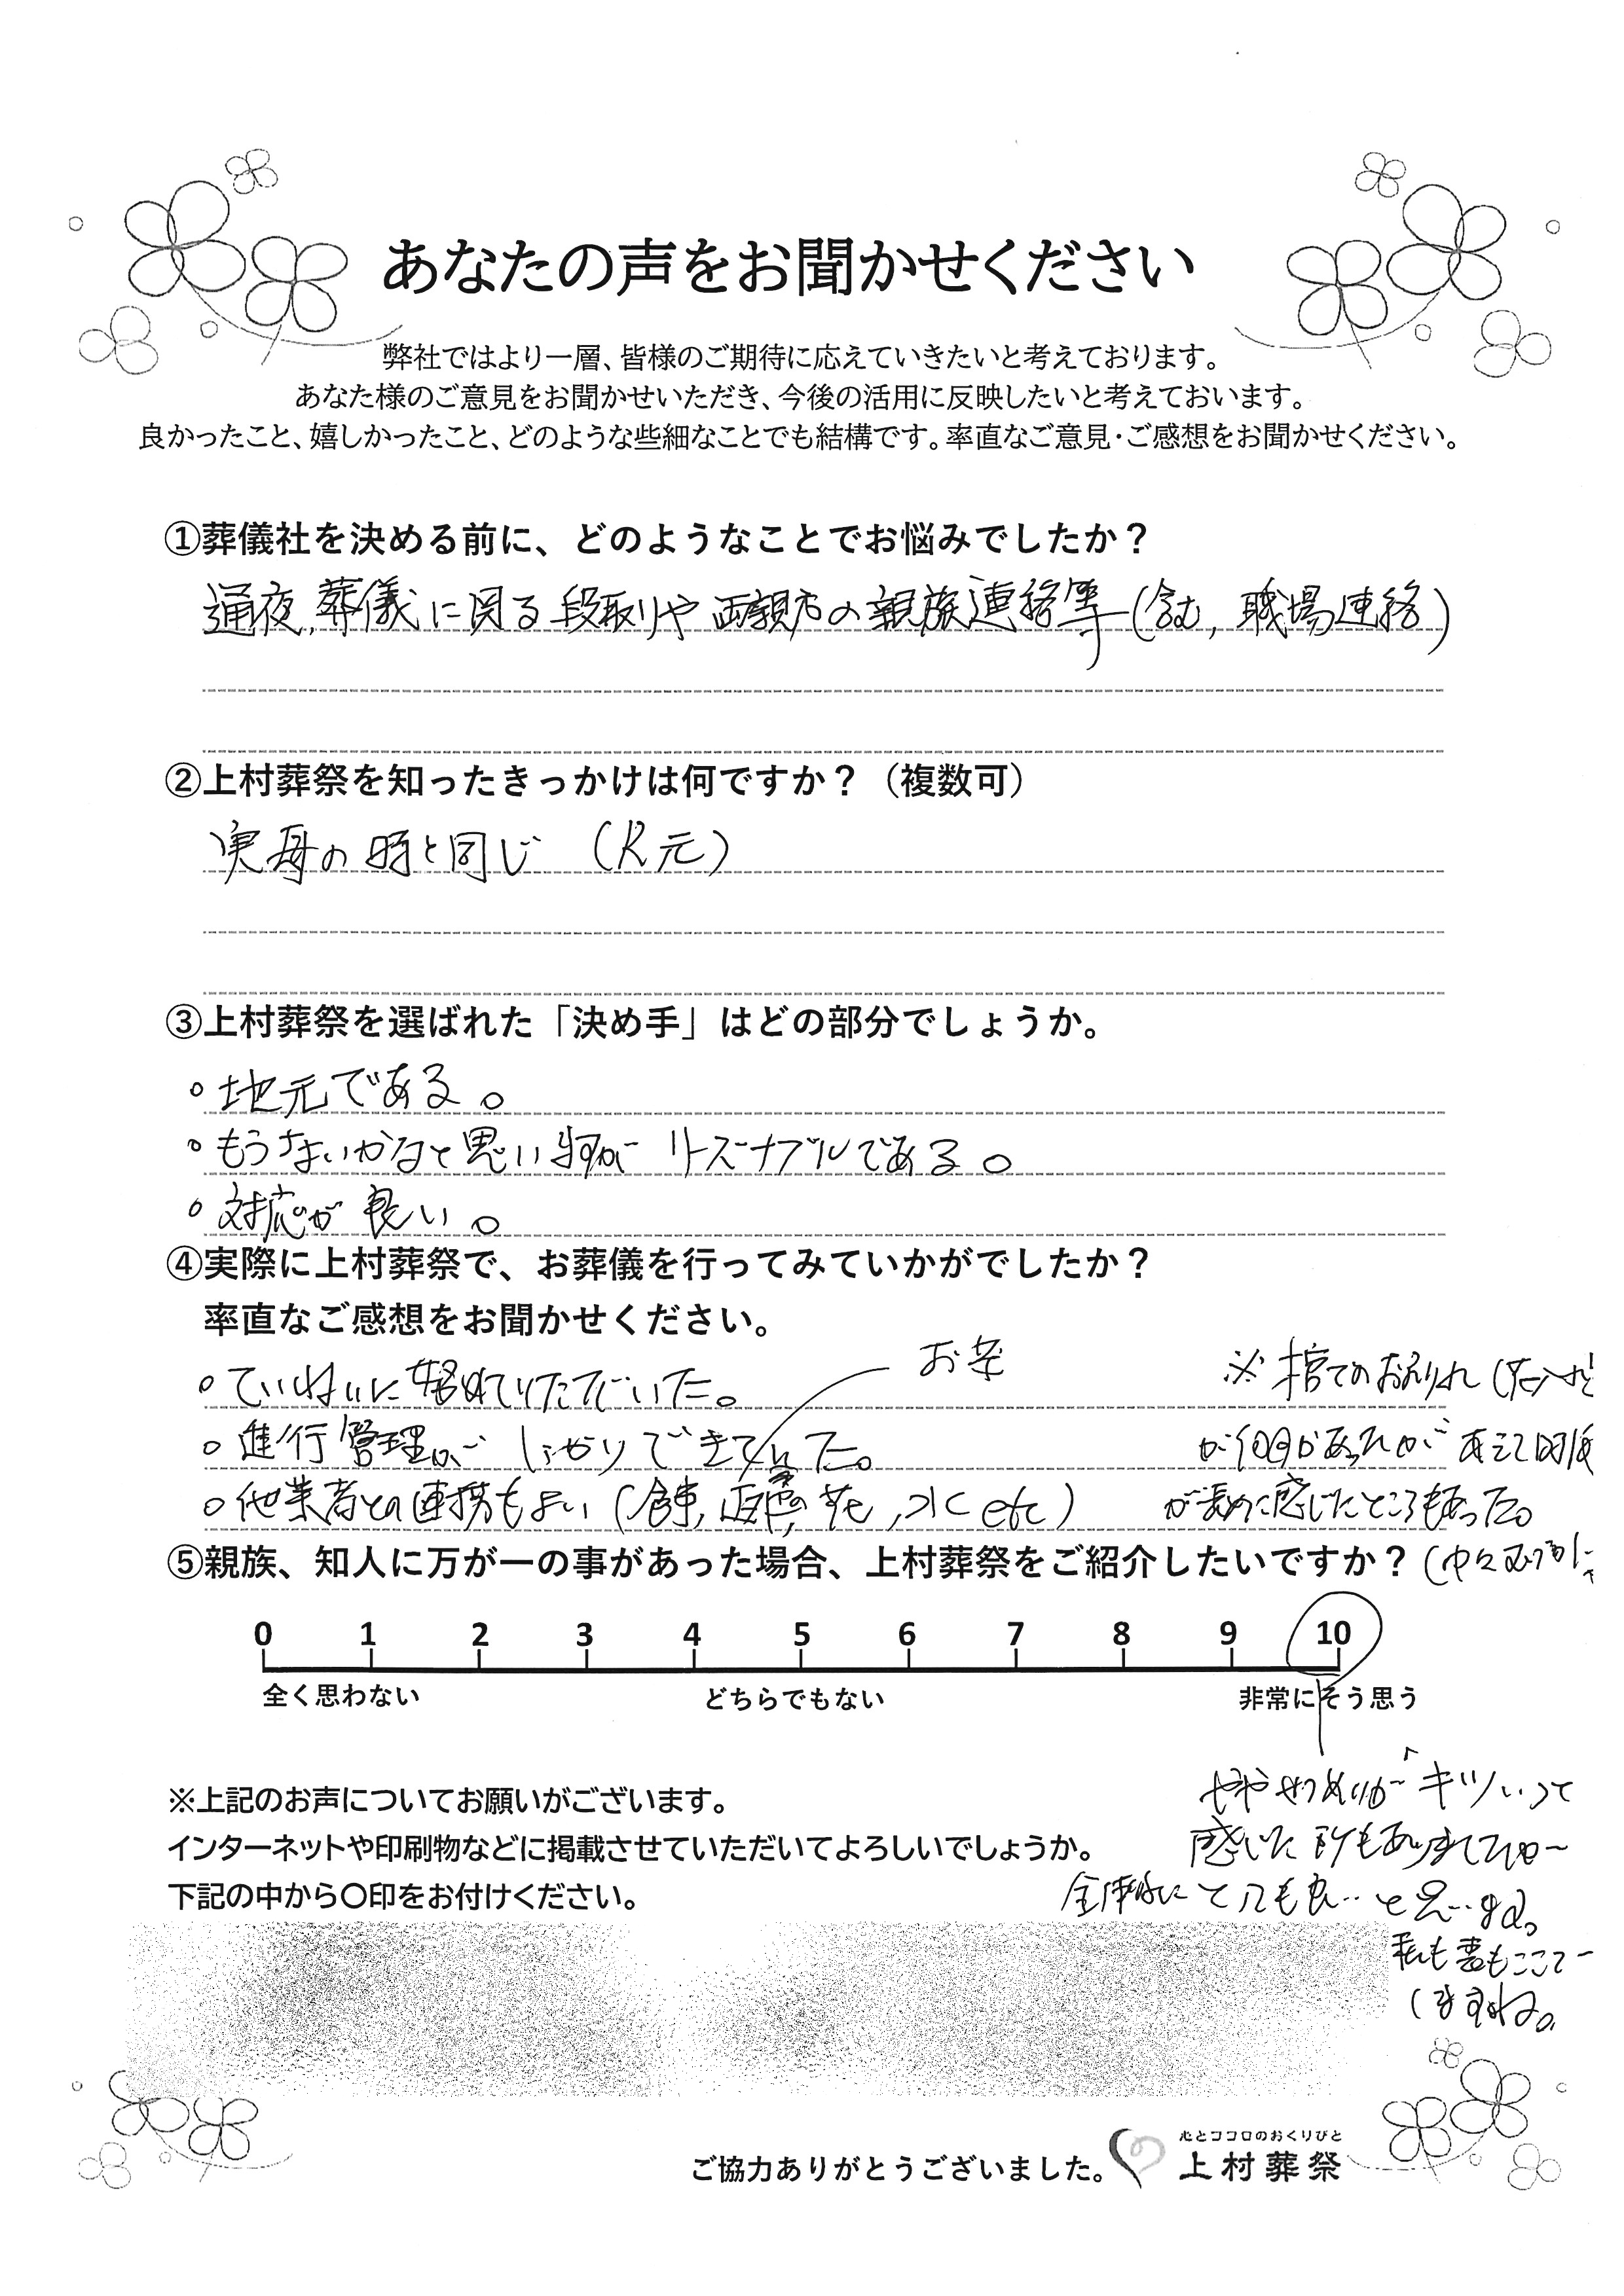 あなたの声をお聞かせください
弊社ではより一層、皆様のご期待に応えていきたいと考えております。
あなた様のご意見をお聞かせいただき、今後の活用に反映したいと考えておいます。
良かったこと、嬉しかったこと、どのような些細なことでも結構です。率直なご意見・ご感想をお聞かせください。
①葬儀社を決める前に、どのようなことでお悩みでしたか？
通夜、葬儀に関る段取りや両親方の親族連絡等(含む,職場連絡)
②上村葬祭を知ったきっかけは何ですか？（複数可）
実母の時と同じ
③上村葬祭を選ばれた「決め手」はどの部分でしょうか。
・地元である。
・もうないかなと思いますが リーズナブルである。
・対応が良い。
④実際に上村葬祭で、お葬儀を行ってみていかがでしたか？
率直なご感想をお聞かせください。
・ていねいに
・進行管理が しっかりできていた。
お茶
・他業者との連携もよい (食事, 花, etc)
※棺でのお別れ
が何回かあったが あえて
が長めに感じたところもあった。
⑤親族、知人に万が一の事があった場合、上村葬祭をご紹介したいですか？
0 1 2 3 4 5 6 7 8 9 10
全く思わない どちらでもない 非常にそう思う
やや キツいって
感じた所もありまして
全体的にとても良い と思います。
私も妻もここで
しますね。
※上記のお声についてお願いがございます。
インターネットや印刷物などに掲載させていただいてよろしいでしょうか。
下記の中から〇印をお付けください。
ご協力ありがとうございました。
心とココロのおくりびと
上村葬祭